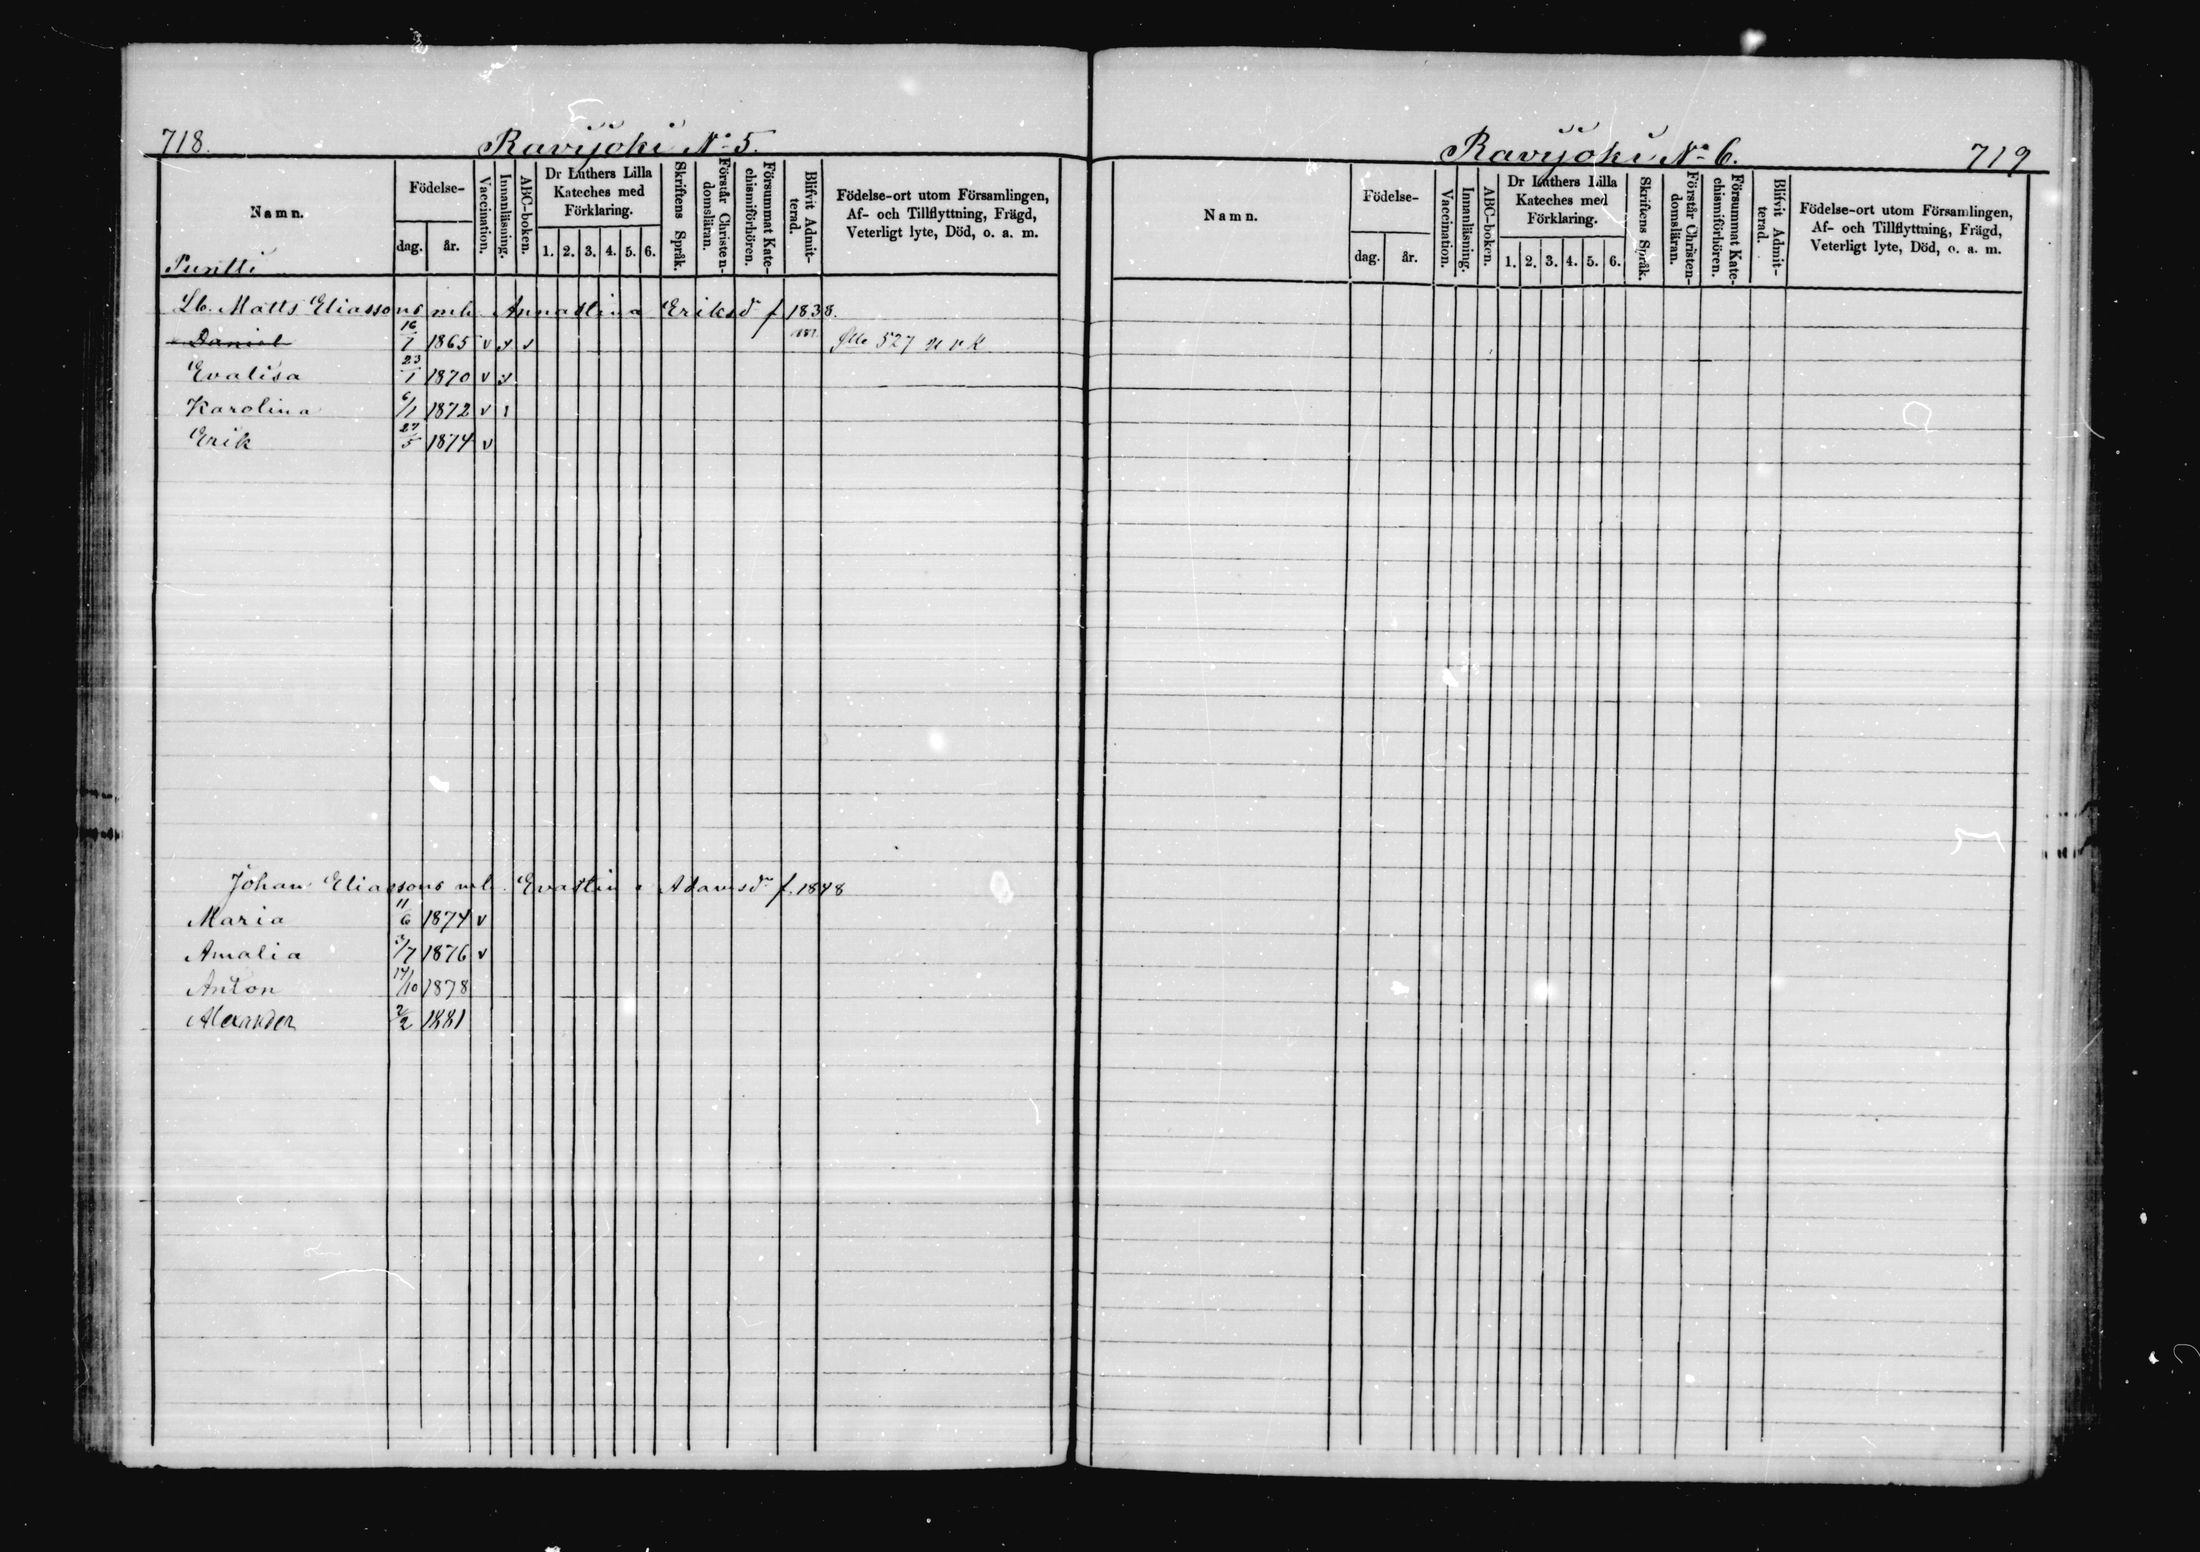 718.
Ravijoki No 5.
Namn.
Födelse-
dag.
år.
Vaccination.
Innanläsning.
ABC-boken.
Dr Luthers Lilla
Kateches med
Förklaring.
1. 2. 3. 4. 5. 6.
Skriftens Språk.
Förstår Christen-
domsläran.
Försummat Kate-
chismiförhören.
Blifvit Admit-
terad.
Födelse-ort utom Församlingen,
Af- och Tillflyttning, Frägd,
Veterligt lyte, Död, o. a. m.
Lb. Matts Eliassons mh. Annastina Eriksdr f 1838.
Daniel 16/7 1865 v 527 n v k
Evalisa 23/1 1870 v
Karolina 6/1 1872 v
Erik 27/5 1874 v
Johan Eliassons mh. Evastina Adamsdr f. 1848
Maria 11/6 1874 v
Amalia 3/7 1876 v
Anton 14/10 1878
Alexander 2/2 1881
Ravijoki No 6.
719
Namn.
Födelse-
dag.
år.
Vaccination.
Innanläsning.
ABC-boken.
Dr Luthers Lilla
Kateches med
Förklaring.
1. 2. 3. 4. 5. 6.
Skriftens Språk.
Förstår Christen-
domsläran.
Försummat Kate-
chismiförhören.
Blifvit Admit-
terad.
Födelse-ort utom Församlingen,
Af- och Tillflyttning, Frägd,
Veterligt lyte, Död, o. a. m.